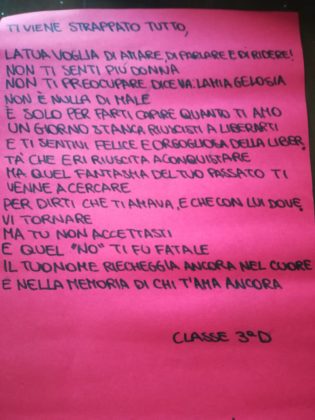 TI VIENE STRAPPATO TUTTO,
LA TUA VOGLIA DI AMARE, DI PARLARE E DI RIDERE!
NON TI SENTI PIÙ DONNA
NON TI PREOCCUPARE DICEVA: LA MIA GELOSIA
NON È NULLA DI MALE
È SOLO PER FARTI CAPIRE QUANTO TI AMO
UN GIORNO STANCA RIUSCISTI A LIBERARTI
E TI SENTIVI FELICE E ORGOGLIOSA DELLA LIBER,
TA' CHE ERI RIUSCITA A CONQUISTARE
MA QUEL FANTASMA DEL TUO PASSATO TI
VENNE A CERCARE
PER DIRTI CHE TI AMAVA, E CHE CON LUI DOVE,
VI TORNARE
MA TU NON ACCETTASTI
E QUEL "NO" TI FU FATALE
IL TUO NOME RIECHEGGIA ANCORA NEL CUORE
E NELLA MEMORIA DI CHI T'AMA ANCORA
CLASSE 3ªD